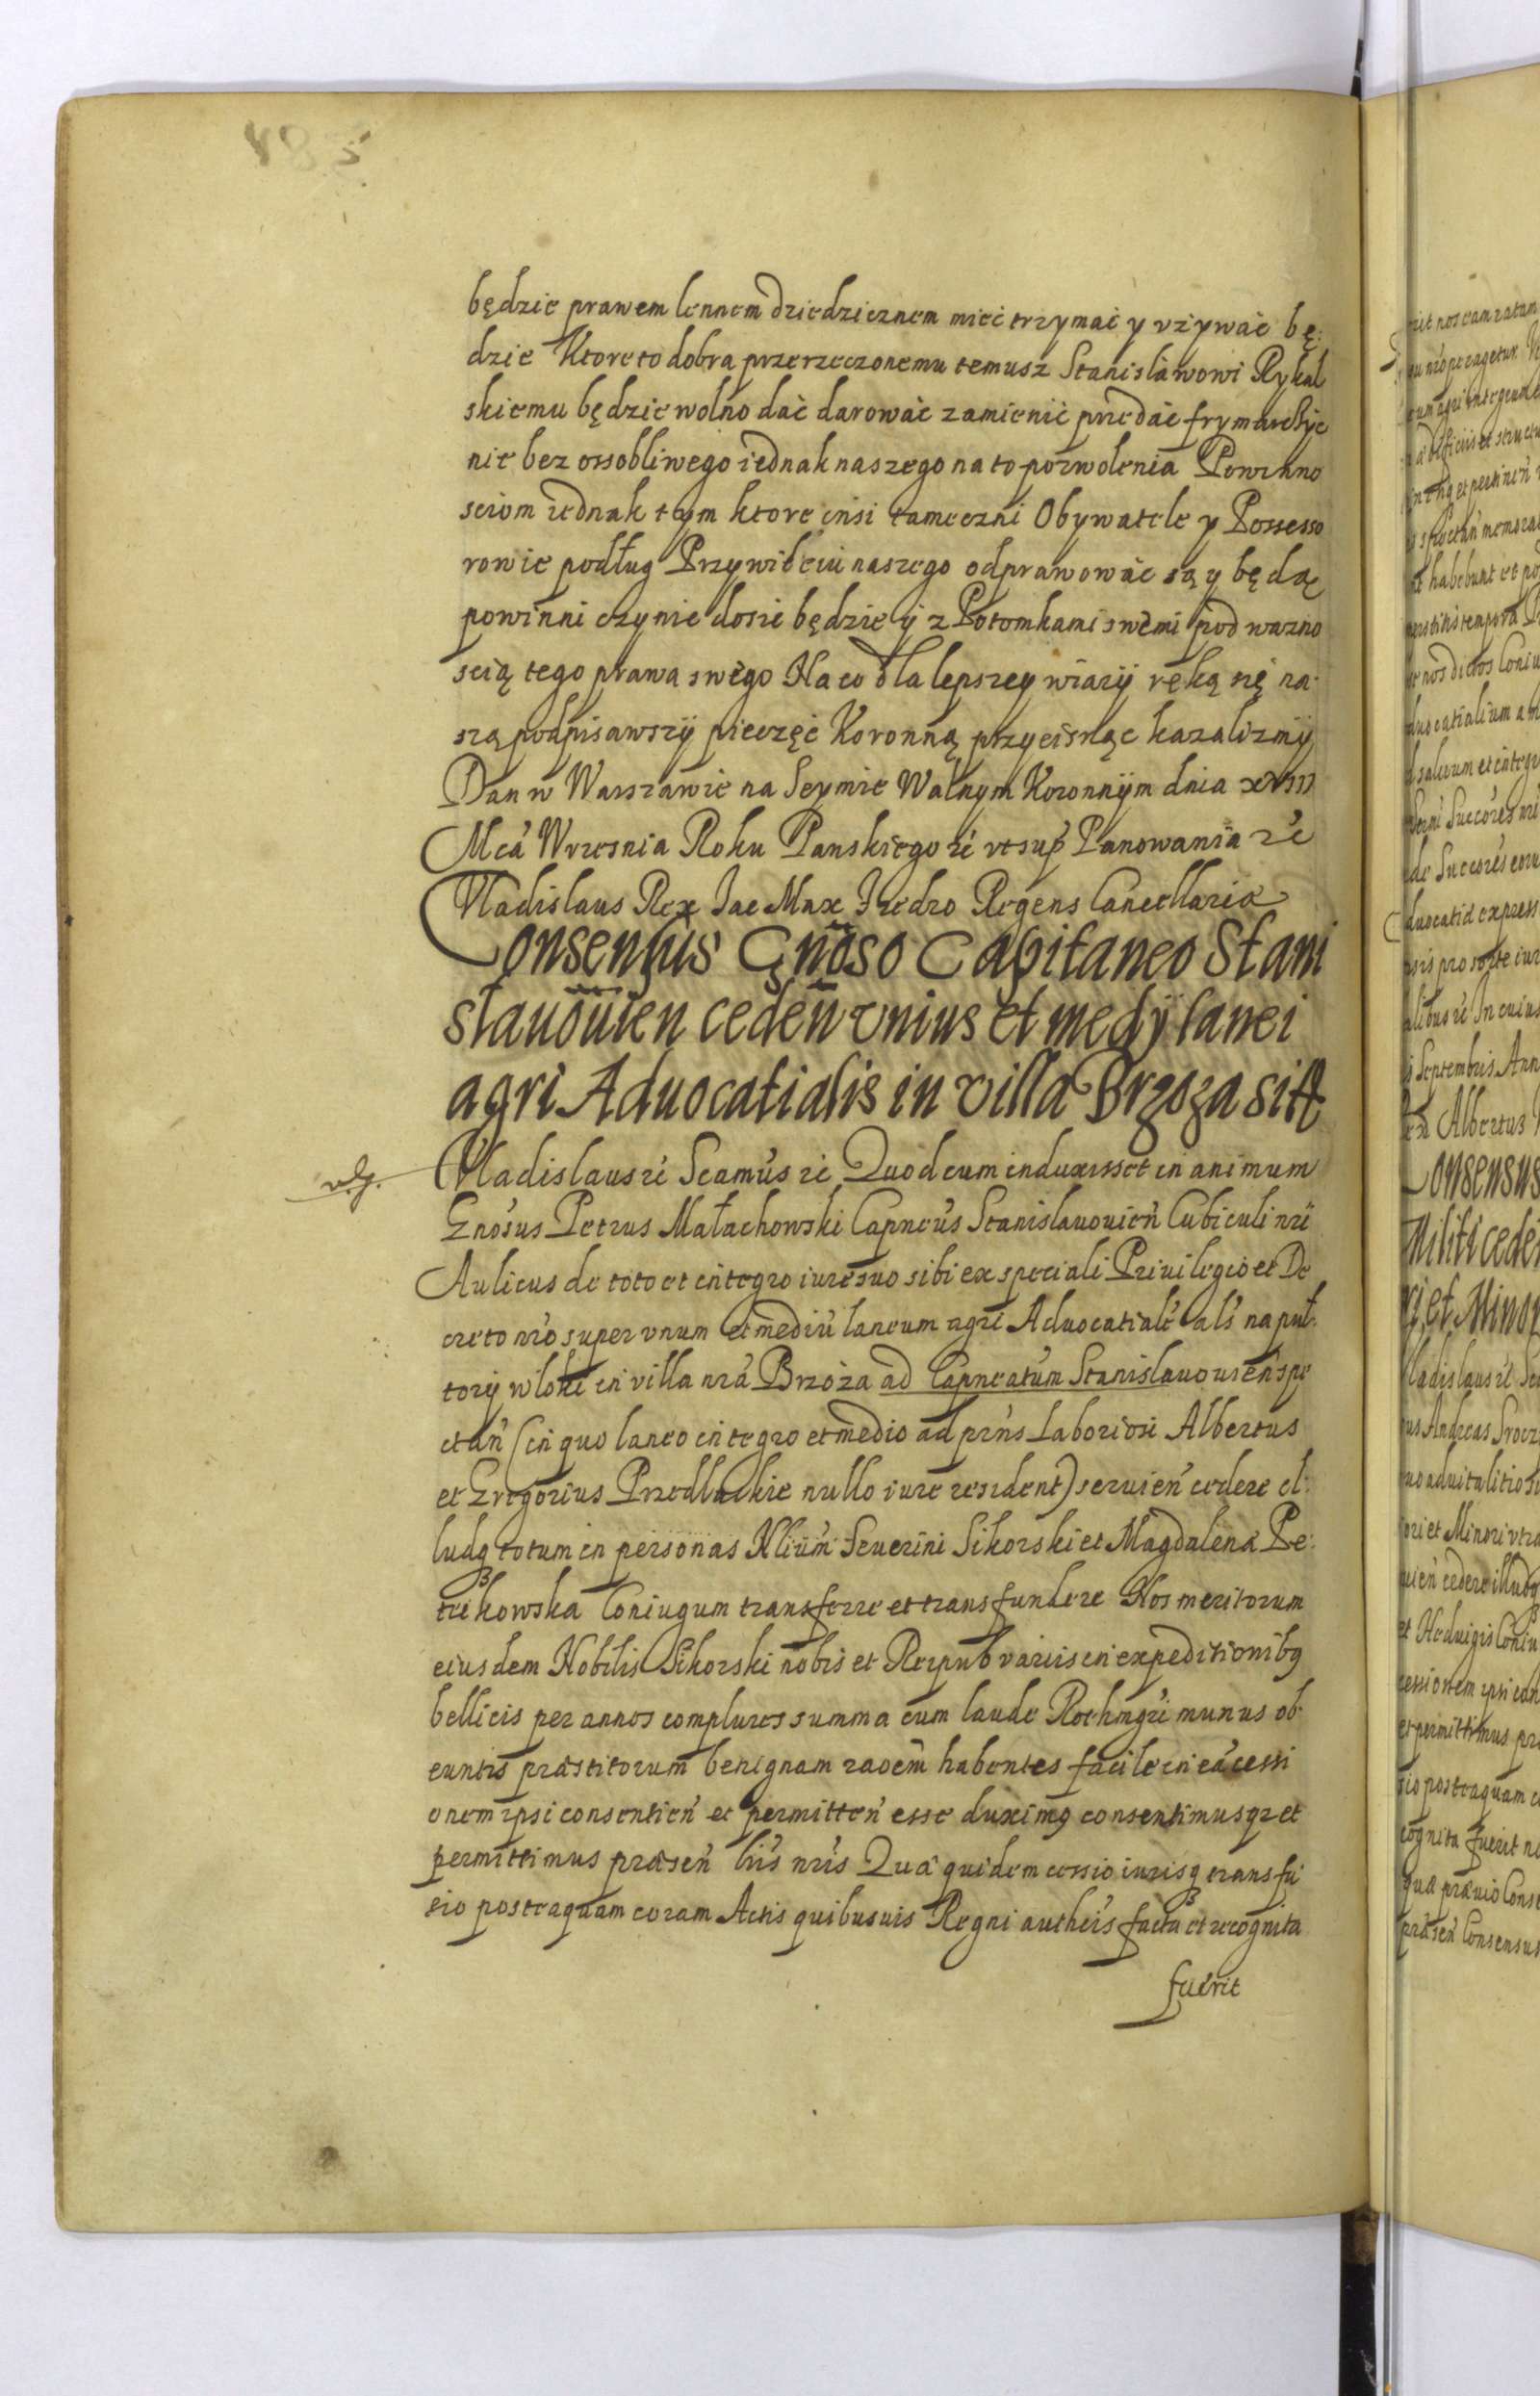 będzie prawem lennem dziedzicznem mieć trzymać y vżywać bę:
dzie Ktoreto dobra przerzeczonemu temusz Stanisławowi Rykal
skiemu będzie wolno dać darować zamienić przedać frymarchyć
nie bez ossobliwego iednak naszego na to pozwolenia Powinno
sciom iednak tym ktore insi tameczni Obywatele y Possesso
rowie podług Przywileiu naszego odprawować są y będą
powinni czynić dosić będzie y z Potomkami swemi pod wazno
scią tego prawa swego Na co dla lepszey wiary ręką się na:
szą podpisawszy pieczęć Koronną przycisnąc kazalizmy
Dan w Warszawie na Seymie Walnym Koronnym dnia XVIII
Mcá Wrzesnia Roku Panskiego rć vt sup Panowania rć
Vladislaus Rex Jac Max Fredro Regens Cancellariæ
Consensus Gnoso Capitaneo Stani
slauouien ceden vnius et medÿ lanei
agri Aduocatialis in villa Brzoza sitt
Vladislaus rć Seamus rć Quod cum induxisset in animum
Gnosus Petrus Małachowski Capneus Stanislauouien Cubiculi nri
Aulicus de toto et integro iure suo sibi ex speciali Priuilegio et De
creto nro super vnum et mediu laneum agri Aduocatialé als na puł:
tory wloki in villa nra Brzoza ad Capneatum Stanislauouien spe
ctan (in quo laneo integro et medio ad prns Laboriosi Albertus
et Gregorius Przedlackie nullo iure resident) seruien cedere il:
ludq totum in personas Nlium Seuerini Sikorski et Magdalena Pe:
trikowska Coniugum transferre et transfundere Nos meritorum
eiusdem Nobilis Sikorski nobis et Reipub variis in expeditionibq
bellicis per annos complures summa cum laude Rothmgri munus ob:
euntis præstitorum benignam raoem habentes facile in eá cessi
onem ipsi consentien et permitten esse duximq consentimusqz et
permittimus præsen lris nris Quæ quidem cessio iurisq transfu
sio posteaquam coram Actis quibusuis Regni autheis facta et recognita
fuerit